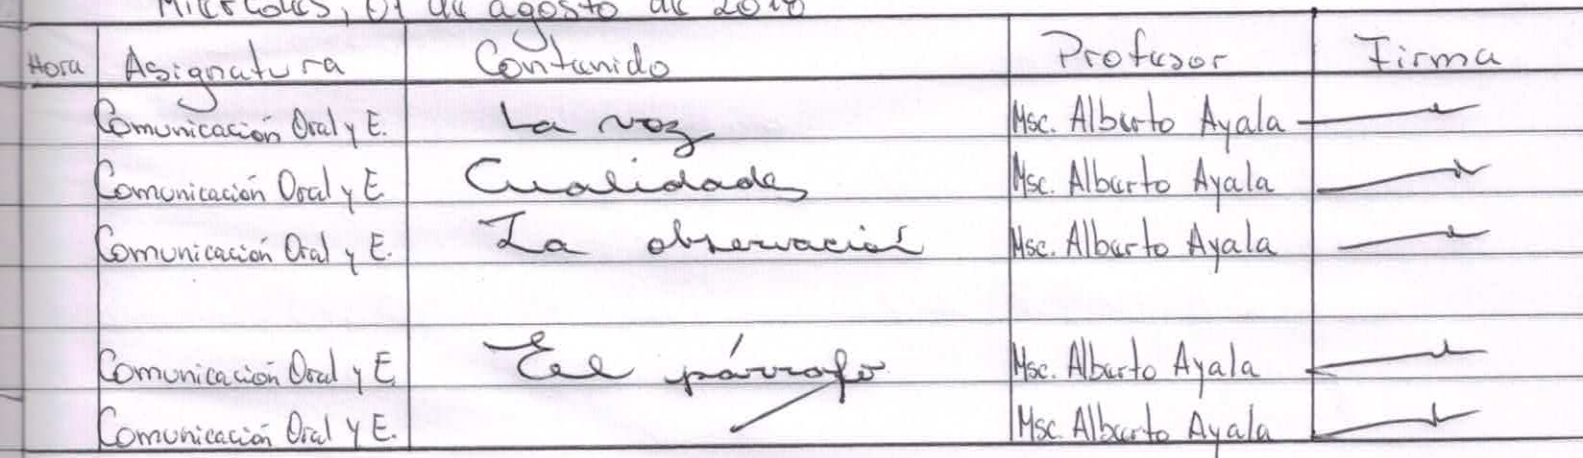 Miércoles, 01 de agosto de 2018
Hora Asignatura Contenido Profesor Firma
Comunicacion Oral y E. La voz Msc. Alberto Ayala
Comunicación Oral y E. Cualidades Msc. Alberto Ayala
Comunicación Oral y E. La observación Msc. Alberto Ayala
Comunicación Oral y E. El párrafo Msc. Alberto Ayala
Comunicación Oral y E. Msc. Alberto Ayala